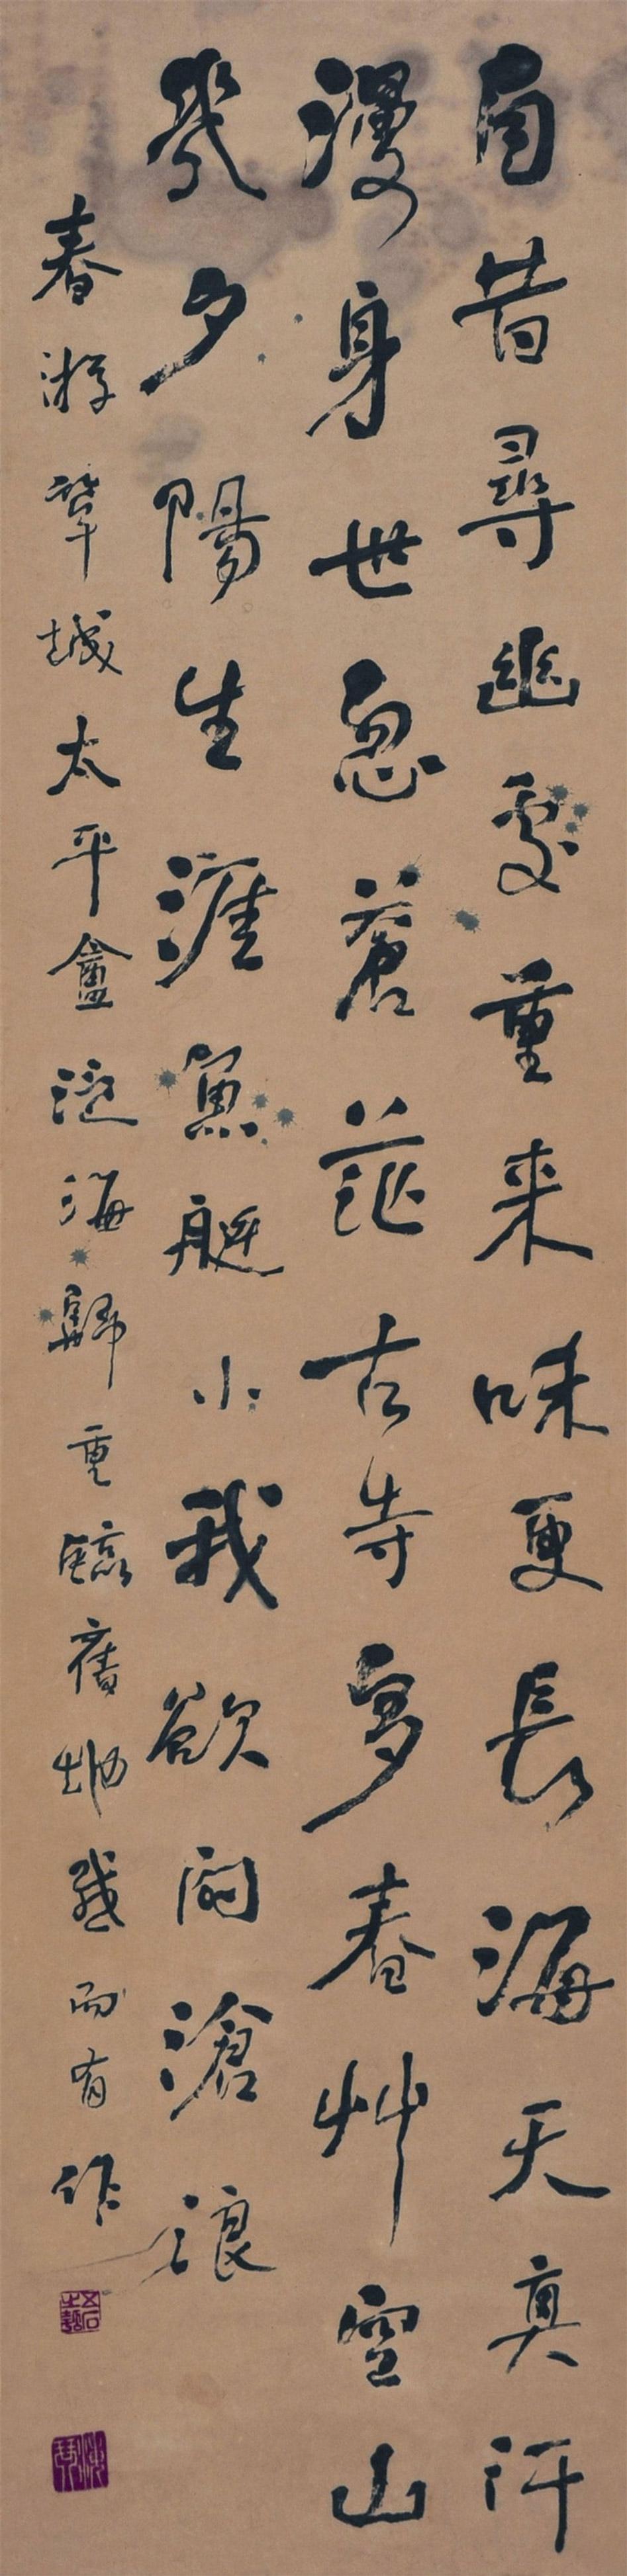 自昔尋幽處重来味更長海天真汗
漫身世忽蒼茫古寺多春艸空山
幾夕陽生涯魚艇小我欲問滄浪
春游城太平盦泛海歸重臨舊地感而有作